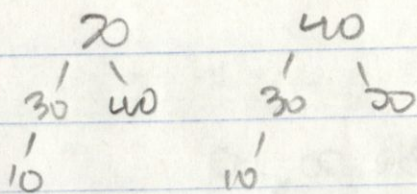 20 40
30 40 30 20
10 10